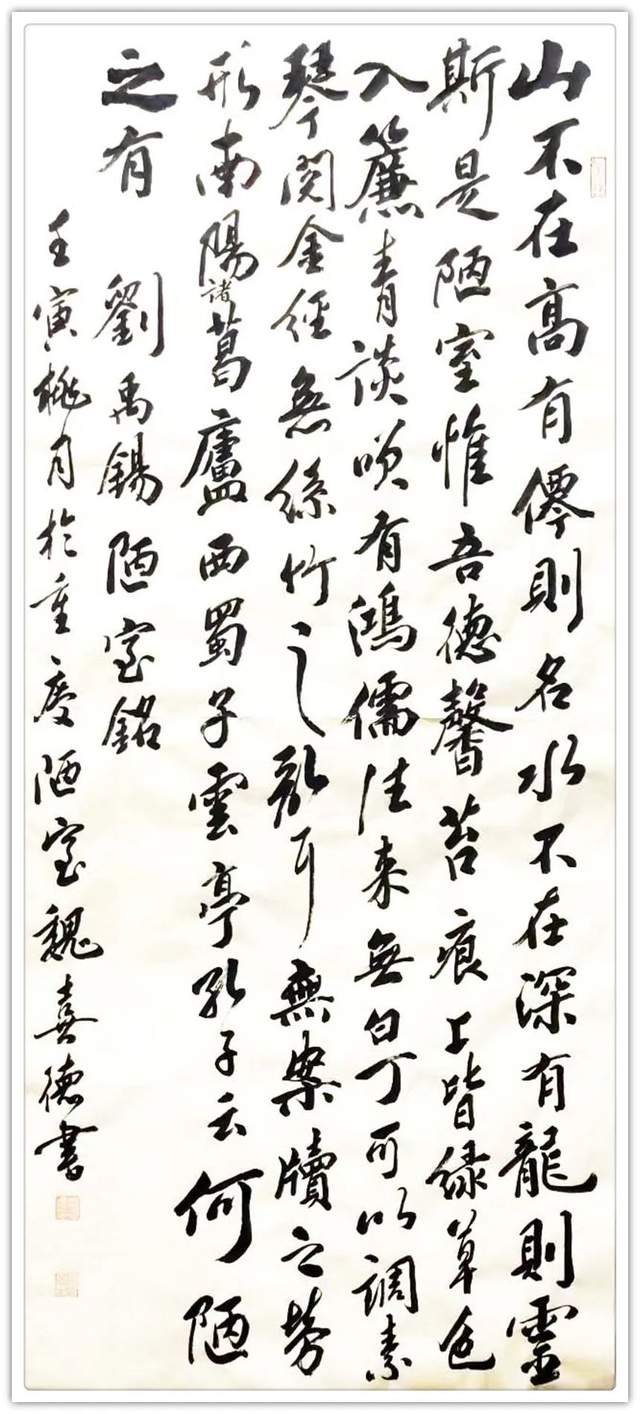 山不在高有僊則名水不在深有龍則靈
斯是陋室惟吾德馨苔痕上皆緑草色
入簾青談笑有鴻儒往来無白丁可以調素
琴閲金經無絲竹之亂耳無案牘之勞
形南陽諸葛廬西蜀子雲亭孔子云何陋
之有 劉禹錫陋室銘
壬寅桃月於重慶陋室魏喜德書